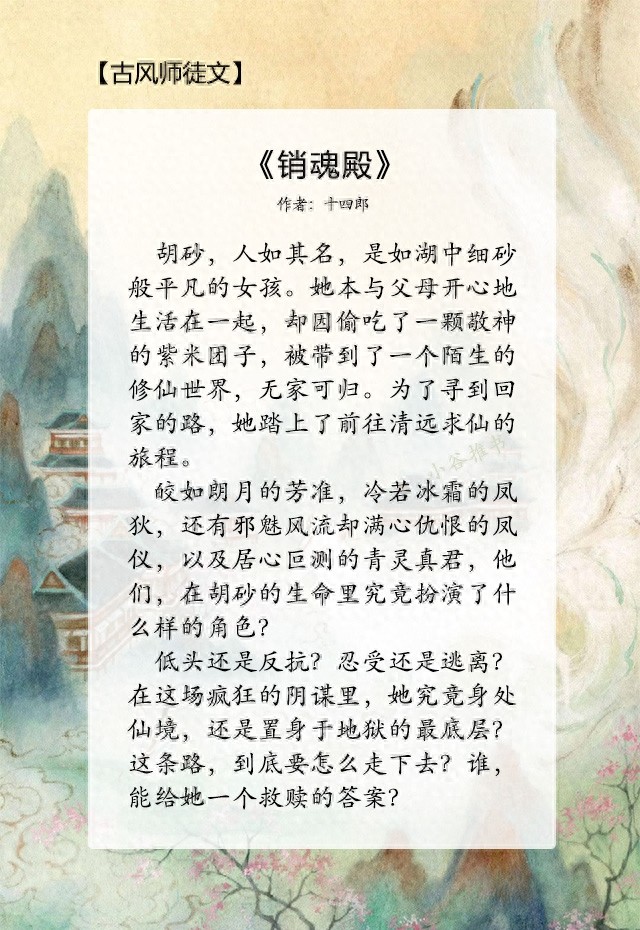 【古风师徒文】
《销魂殿》
作者：十四郎
胡砂，人如其名，是如湖中细砂
般平凡的女孩。她本与父母开心地
生活在一起，却因偷吃了一颗敬神
的紫米团子，被带到了一个陌生的
修仙世界，无家可归。为了寻到回
家的路，她踏上了前往清远求仙的
旅程。
小谷推书
皎如朗月的芳准，冷若冰霜的凤
狄，还有邪魅风流却满心仇恨的凤
仪，以及居心叵测的青灵真君，他
们，在胡砂的生命里究竟扮演了什
么样的角色？
低头还是反抗？忍受还是逃离？
在这场疯狂的阴谋里，她究竟身处
仙境，还是置身于地狱的最底层？
这条路，到底要怎么走下去？谁，
能给她一个救赎的答案？